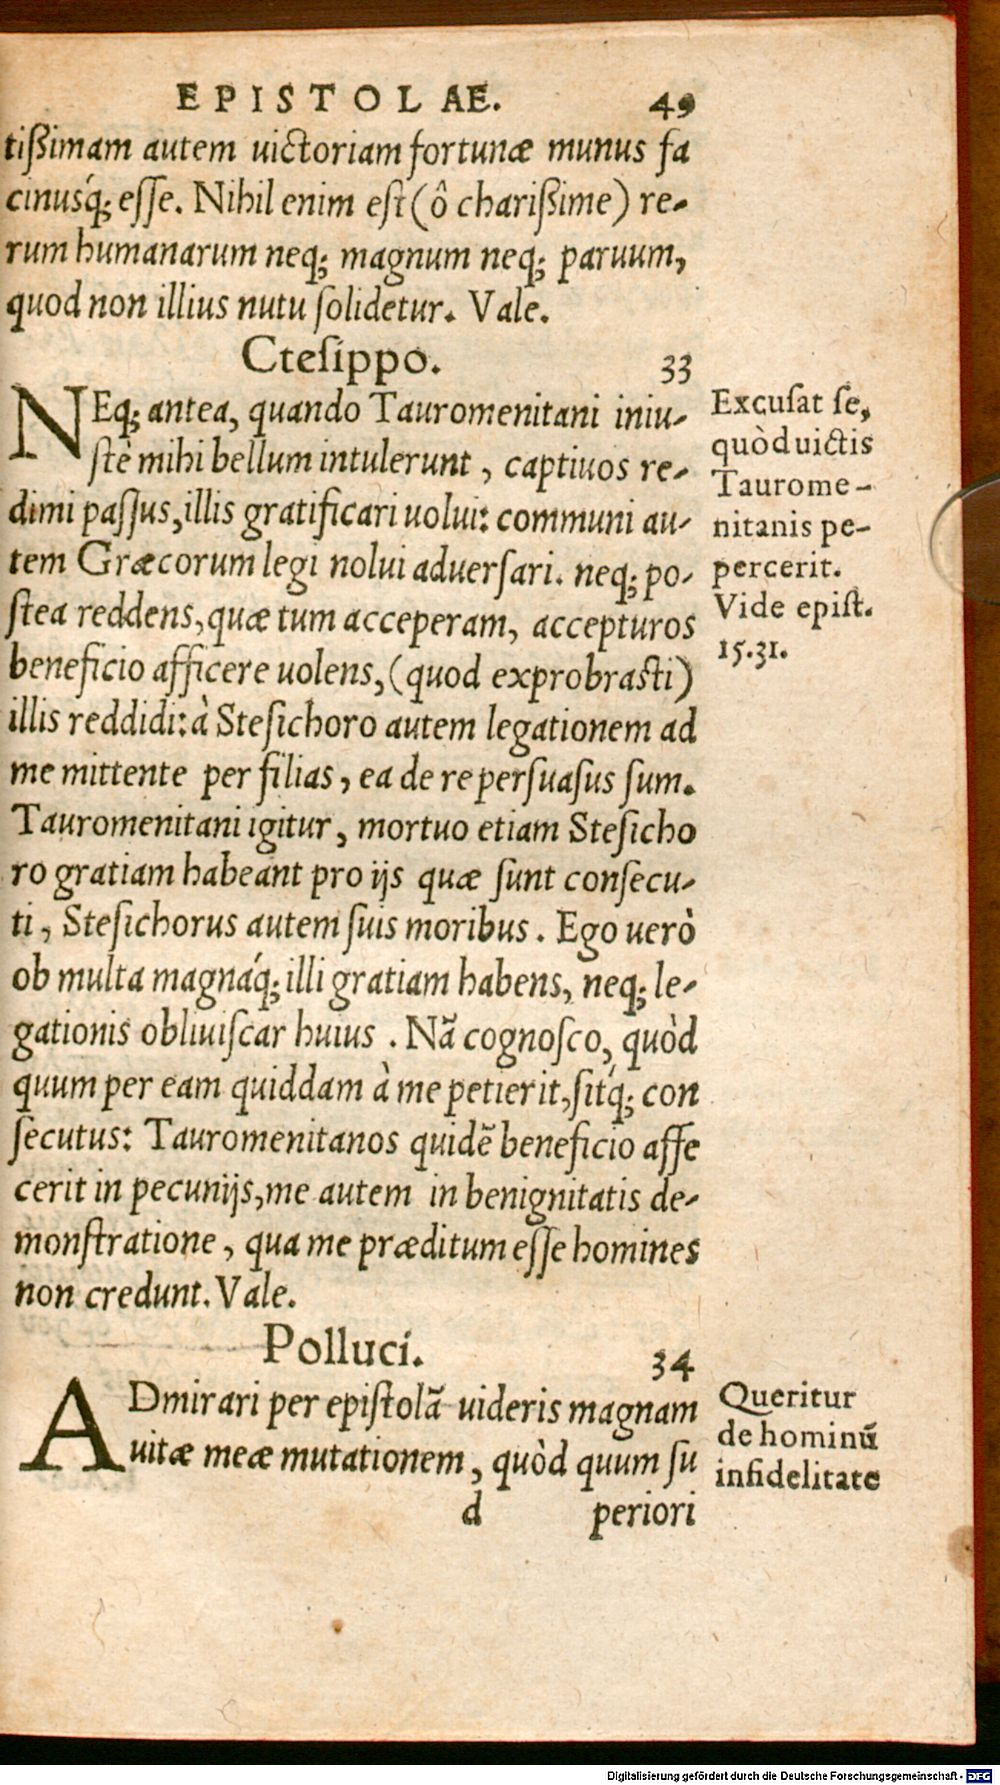 EPISTOLAE. 49
tißimam autem uictoriam fortunæ munus fa
cinusq́; esse. Nihil enim est (ô charißime) re-
rum humanarum neq; magnum neq; paruum,
quod non illius nutu solidetur. Vale.
Ctesippo. 33
NEq; antea, quando Tauromenitani iniu-
stè mihi bellum intulerunt, captiuos re-
dimi passus, illis gratificari uolui: communi au-
tem Græcorum legi nolui aduersari. neq; po-
stea reddens, quæ tum acceperam, accepturos
beneficio afficere uolens, (quod exprobrasti)
illis reddidi: à Stesichoro autem legationem ad
me mittente per filias, ea de re persuasus sum.
Tauromenitani igitur, mortuo etiam Stesicho
ro gratiam habeant pro ijs quæ sunt consecu-
ti, Stesichorus autem suis moribus. Ego uerò
ob multa magnáq; illi gratiam habens, neq; le-
gationis obliuiscar huius. Nã cognosco, quòd
quum per eam quiddam à me petierit, sitq́; con
secutus: Tauromenitanos quidẽ beneficio affe
cerit in pecunijs, me autem in benignitatis de-
monstratione, qua me præditum esse homines
non credunt. Vale.
Excusat se,
quòd uictis
Taurome-
nitanis pe-
percerit.
Vide epist.
15.31.
Polluci. 34
ADmirari per epistolã uideris magnam
uitæ meæ mutationem, quòd quum su
d periori
Queritur
de hominũ
infidelitate
Digitalisierung gefördert durch die Deutsche Forschungsgemeinschaft - DFG